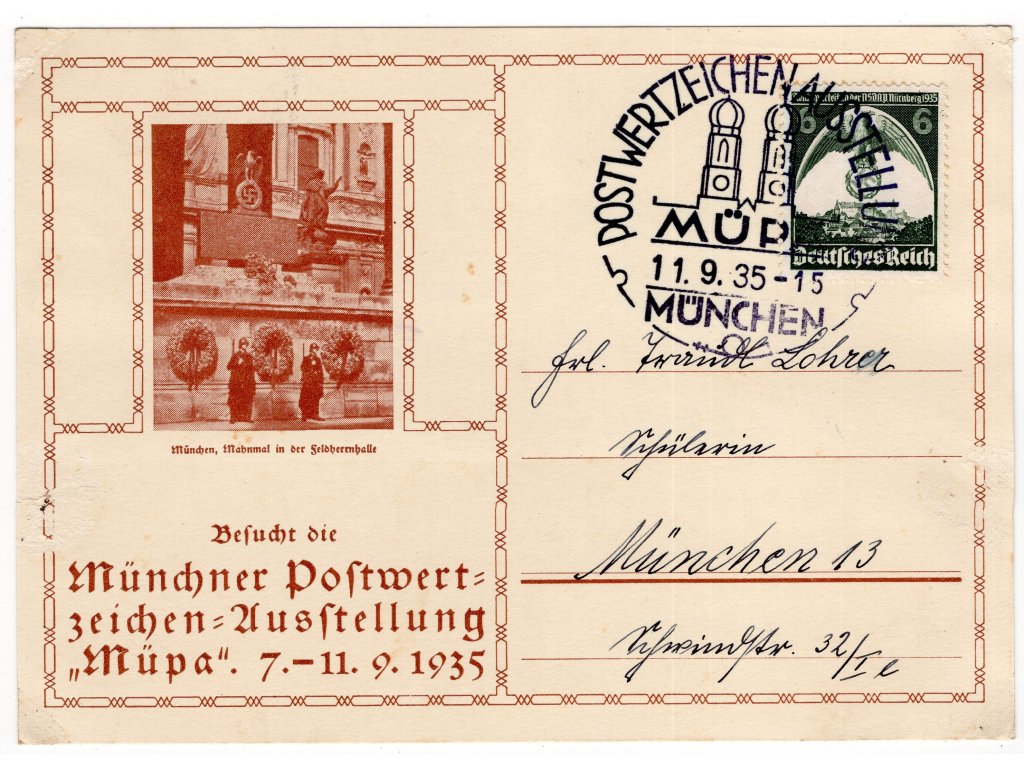 München, Mahnmal in der Feldherrnhalle
Besucht die
Münchner Postwert=
zeichen=Ausstellung
„Müpa“. 7.–11. 9. 1935
POSTWERTZEICHEN AUSSTELLU
MÜP
11.9.35-15
MÜNCHEN
der NSDAP Nürnberg 1935
6 6
Deutsches Reich
Frl. Traudl Lohrer
Schülerin
München 13
Schwindstr. 32/I l